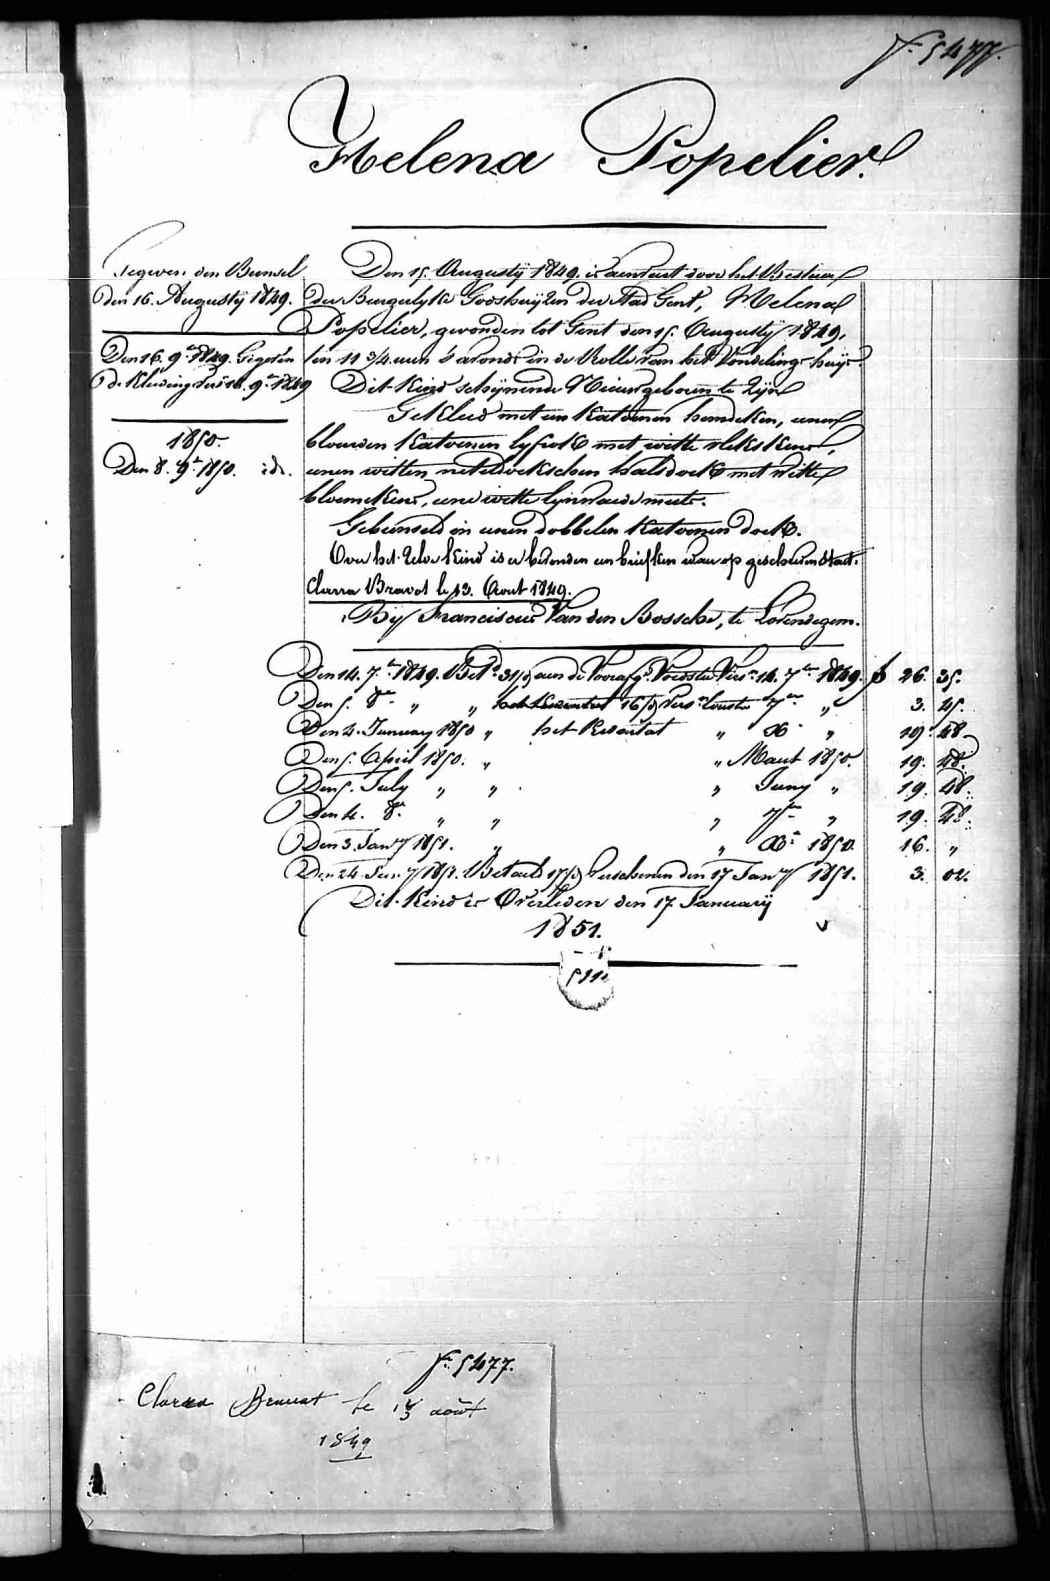 f. 5477.
Helena Popelier.
Gegeven den Bunsel
den 16. Augustÿ 1849.
Den 16. 9.r 1849. Gegeven
de Kleeding vers 16. 9.r 1849
1850.
Den 8. 9.r 1850. id.
Den 15. Augustÿ 1849. is aenveert door het Bestuer
der Burgerlyke Godshuÿzen der Stad Gent, Helena
Popelier, gevonden tot Gent den 15. Augustÿ 1849,
ten 11 3/4 uren 's avonds in de Rolle van het Vondelings huÿs.
Dit Kind schÿnende Nieuwgeboren te zÿn
Gekleed met een Katoenen hemdeken, eenen
blauwen Katoenen lyfrok met witte vlekskens,
eenen witten neteldoekschen halsdoek met witte
bloemekens, eene witte lynwaede muts.
Gebunseld in eenen dobbelen Katoenen doek.
Over het zelve Kind is er bevonden een briefken waer op geschreven staet:
Clarra Bravot le 13. Aout 1849.
Bÿ Franciscus Van den Bossche, te Lovendegem.
Den 14. 7.r 1849. Bet.d 31/d aen de Voorafg. Voedster Vers. 14. 7.r 1849. f 26. 35.
Den 5. 8.r " " 16/d Vers. 7.r " 3. 45.
Den 4. January 1850 " het Resultat " X.r " 19. 48.
Den 5. April 1850. " " Maert 1850. 19. 48.
Den 5. July " " " Juny " 19. 48.
Den 4. 8.r " " " 7.r " 19. 48.
Den 3. Janÿ 1851. " " X.r 1850. 16. "
Den 24. Janÿ 1851. Betaeld 17/d Verschenen den 17 Janÿ 1851. 3. 02.
Dit Kind is Overleden den 17 Januarÿ
1851.
f. 5477.
Clarra Bravat le 13 août
1849